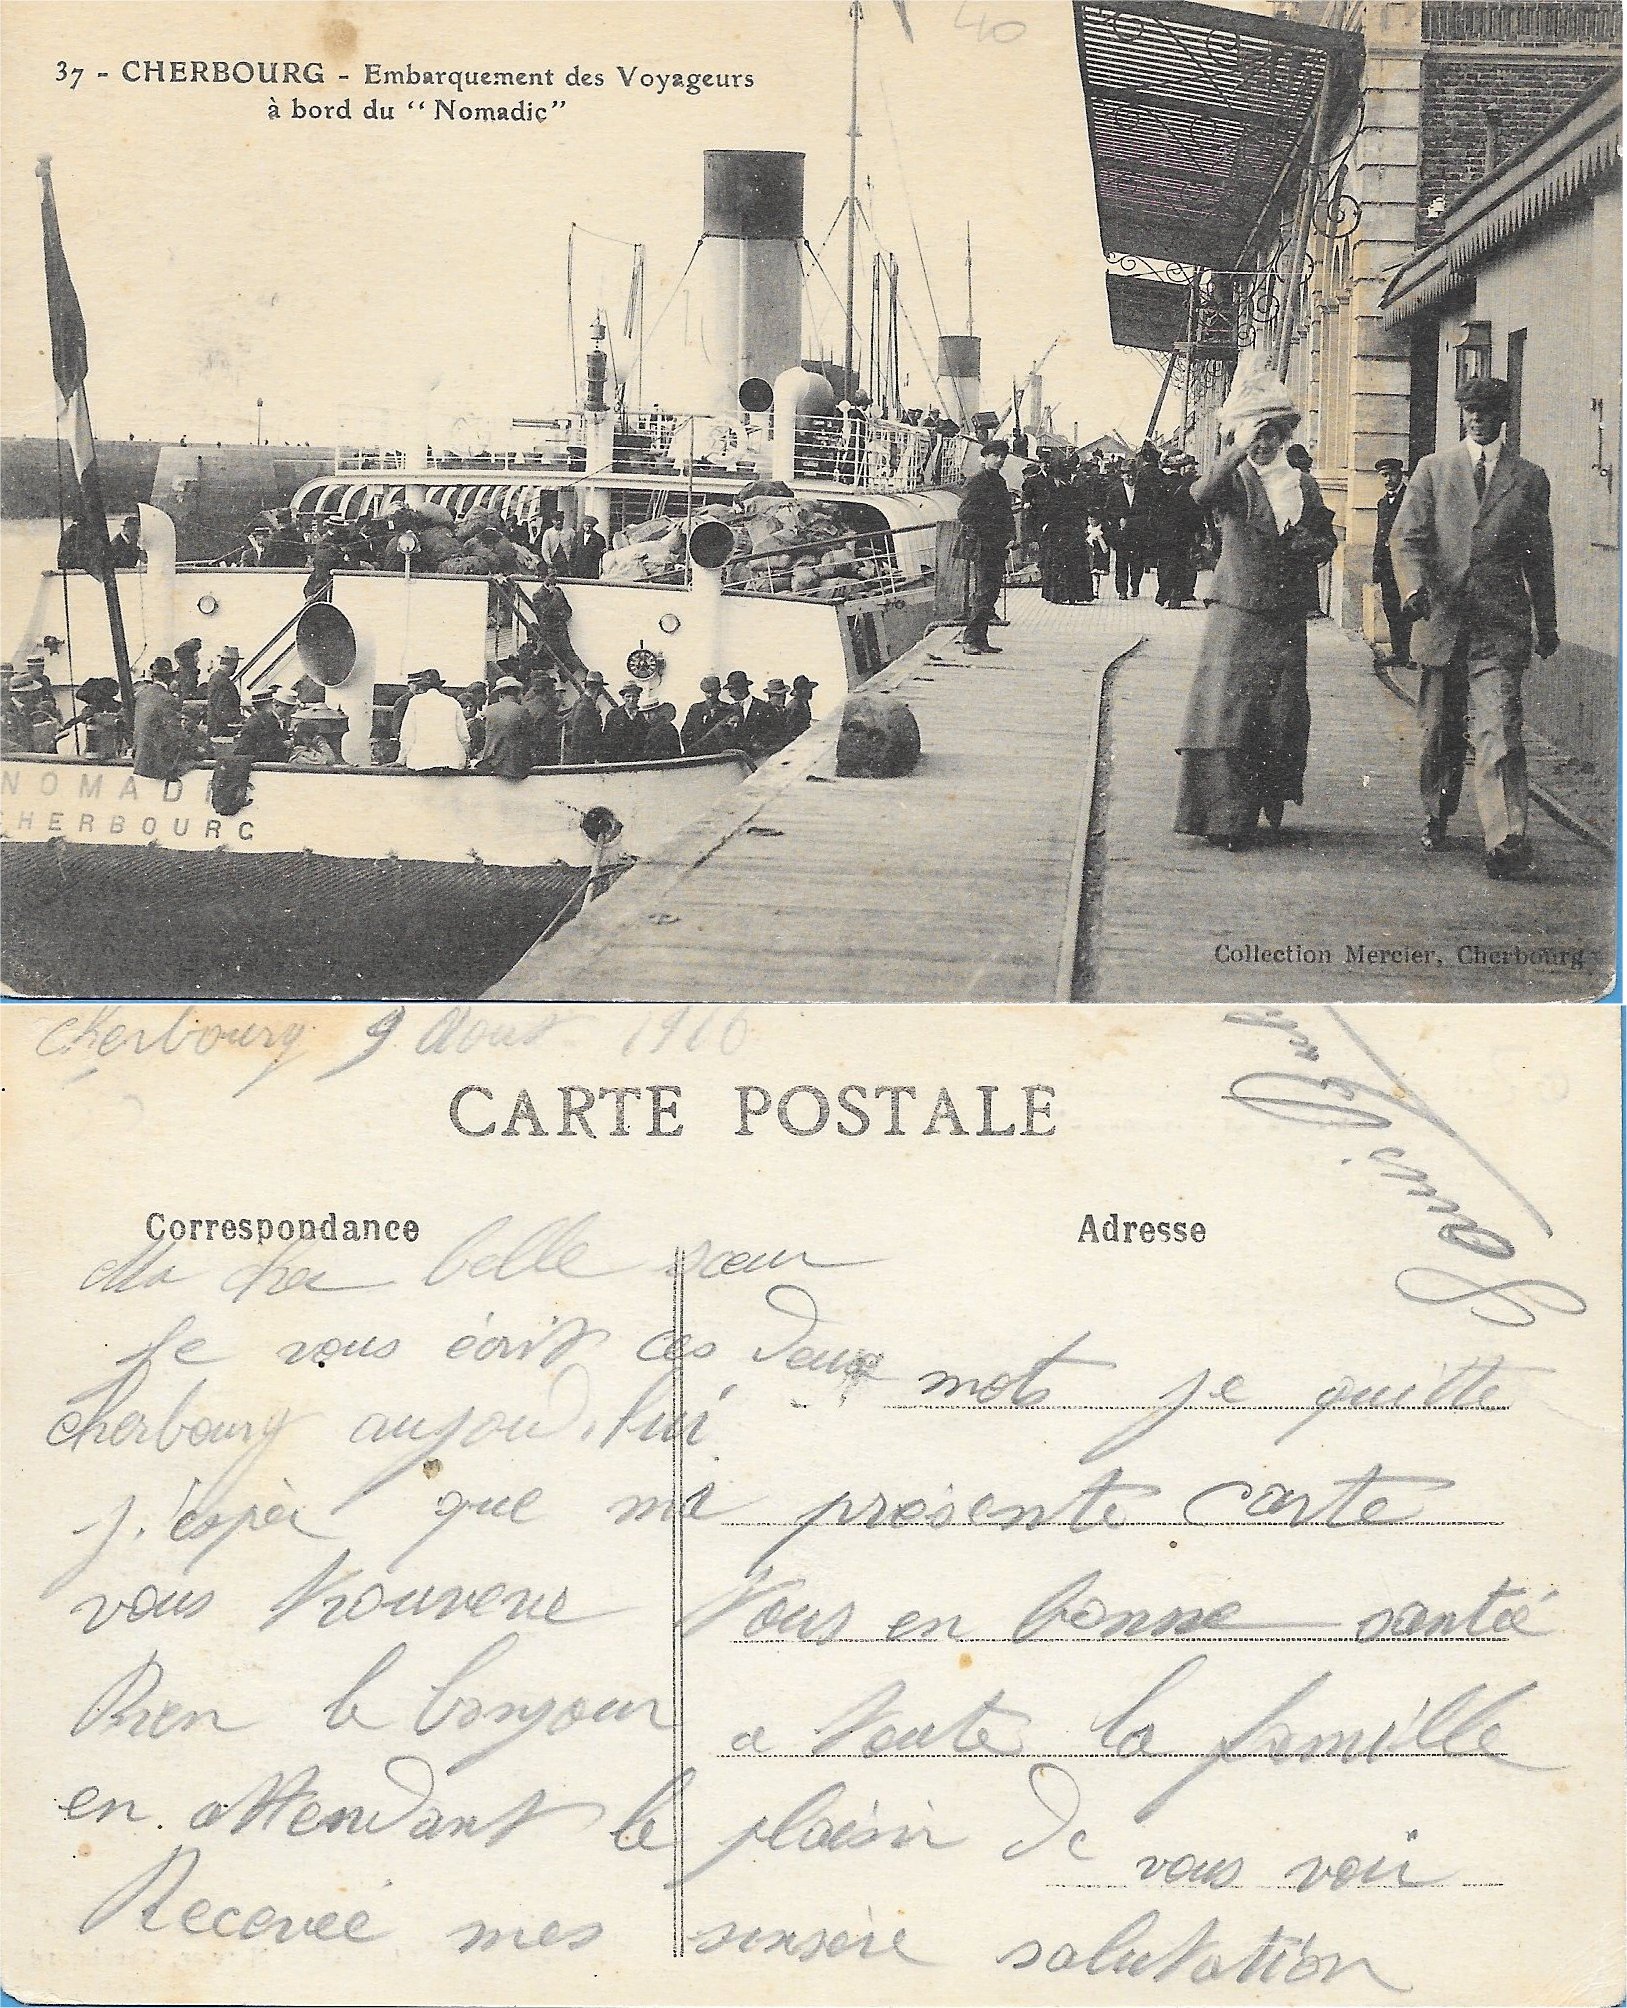 37 - CHERBOURG - Embarquement des Voyageurs
à bord du “ Nomadic”
40
NOMADIC
CHERBOURG
Collection Mercier, Cherbourg
Cherbourg 9 Aout 1916
CARTE POSTALE
Correspondance
Adresse
Louis
Ma cher belle sœur
Je vous écrit ces deux mots je quitte
Cherbourg aujourd'hui
j'espèr que ma présente carte
vous trouvere tous en bonne santé
Bien le bonjour a toute la famille
en attendant le plaisir de vous voir
Recevée mes sensère salutation